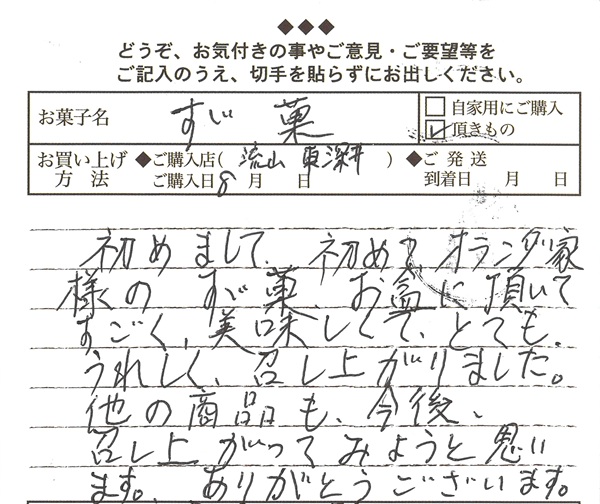 ◆◆◆
どうぞ、お気付きの事やご意見・ご要望等を
ご記入のうえ、切手を貼らずにお出しください。
お菓子名 すが菓 □自家用にご購入
☑頂きもの
お買い上げ ◆ご購入店(流山東深井) ◆ご発送
方法 ご購入日8月 日 到着日 月 日
初めまして、初めてオランダ家
様の すが菓、お盆に頂いて
すごく、美味しくて、とても、
うれしく、召し上がりました。
他の商品も、今後、
召し上がってみようと思い
ます。ありがとうございます。